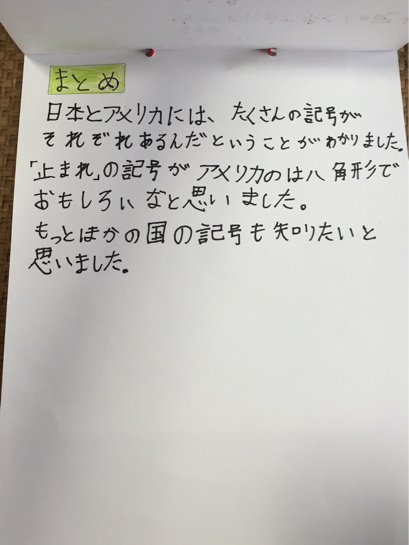 まとめ
日本とアメリカには、たくさんの記号が
それぞれあるんだということがわかりました。
「止まれ」の記号がアメリカのは八角形で
おもしろいなと思いました。
もっとほかの国の記号も知りたいと
思いました。